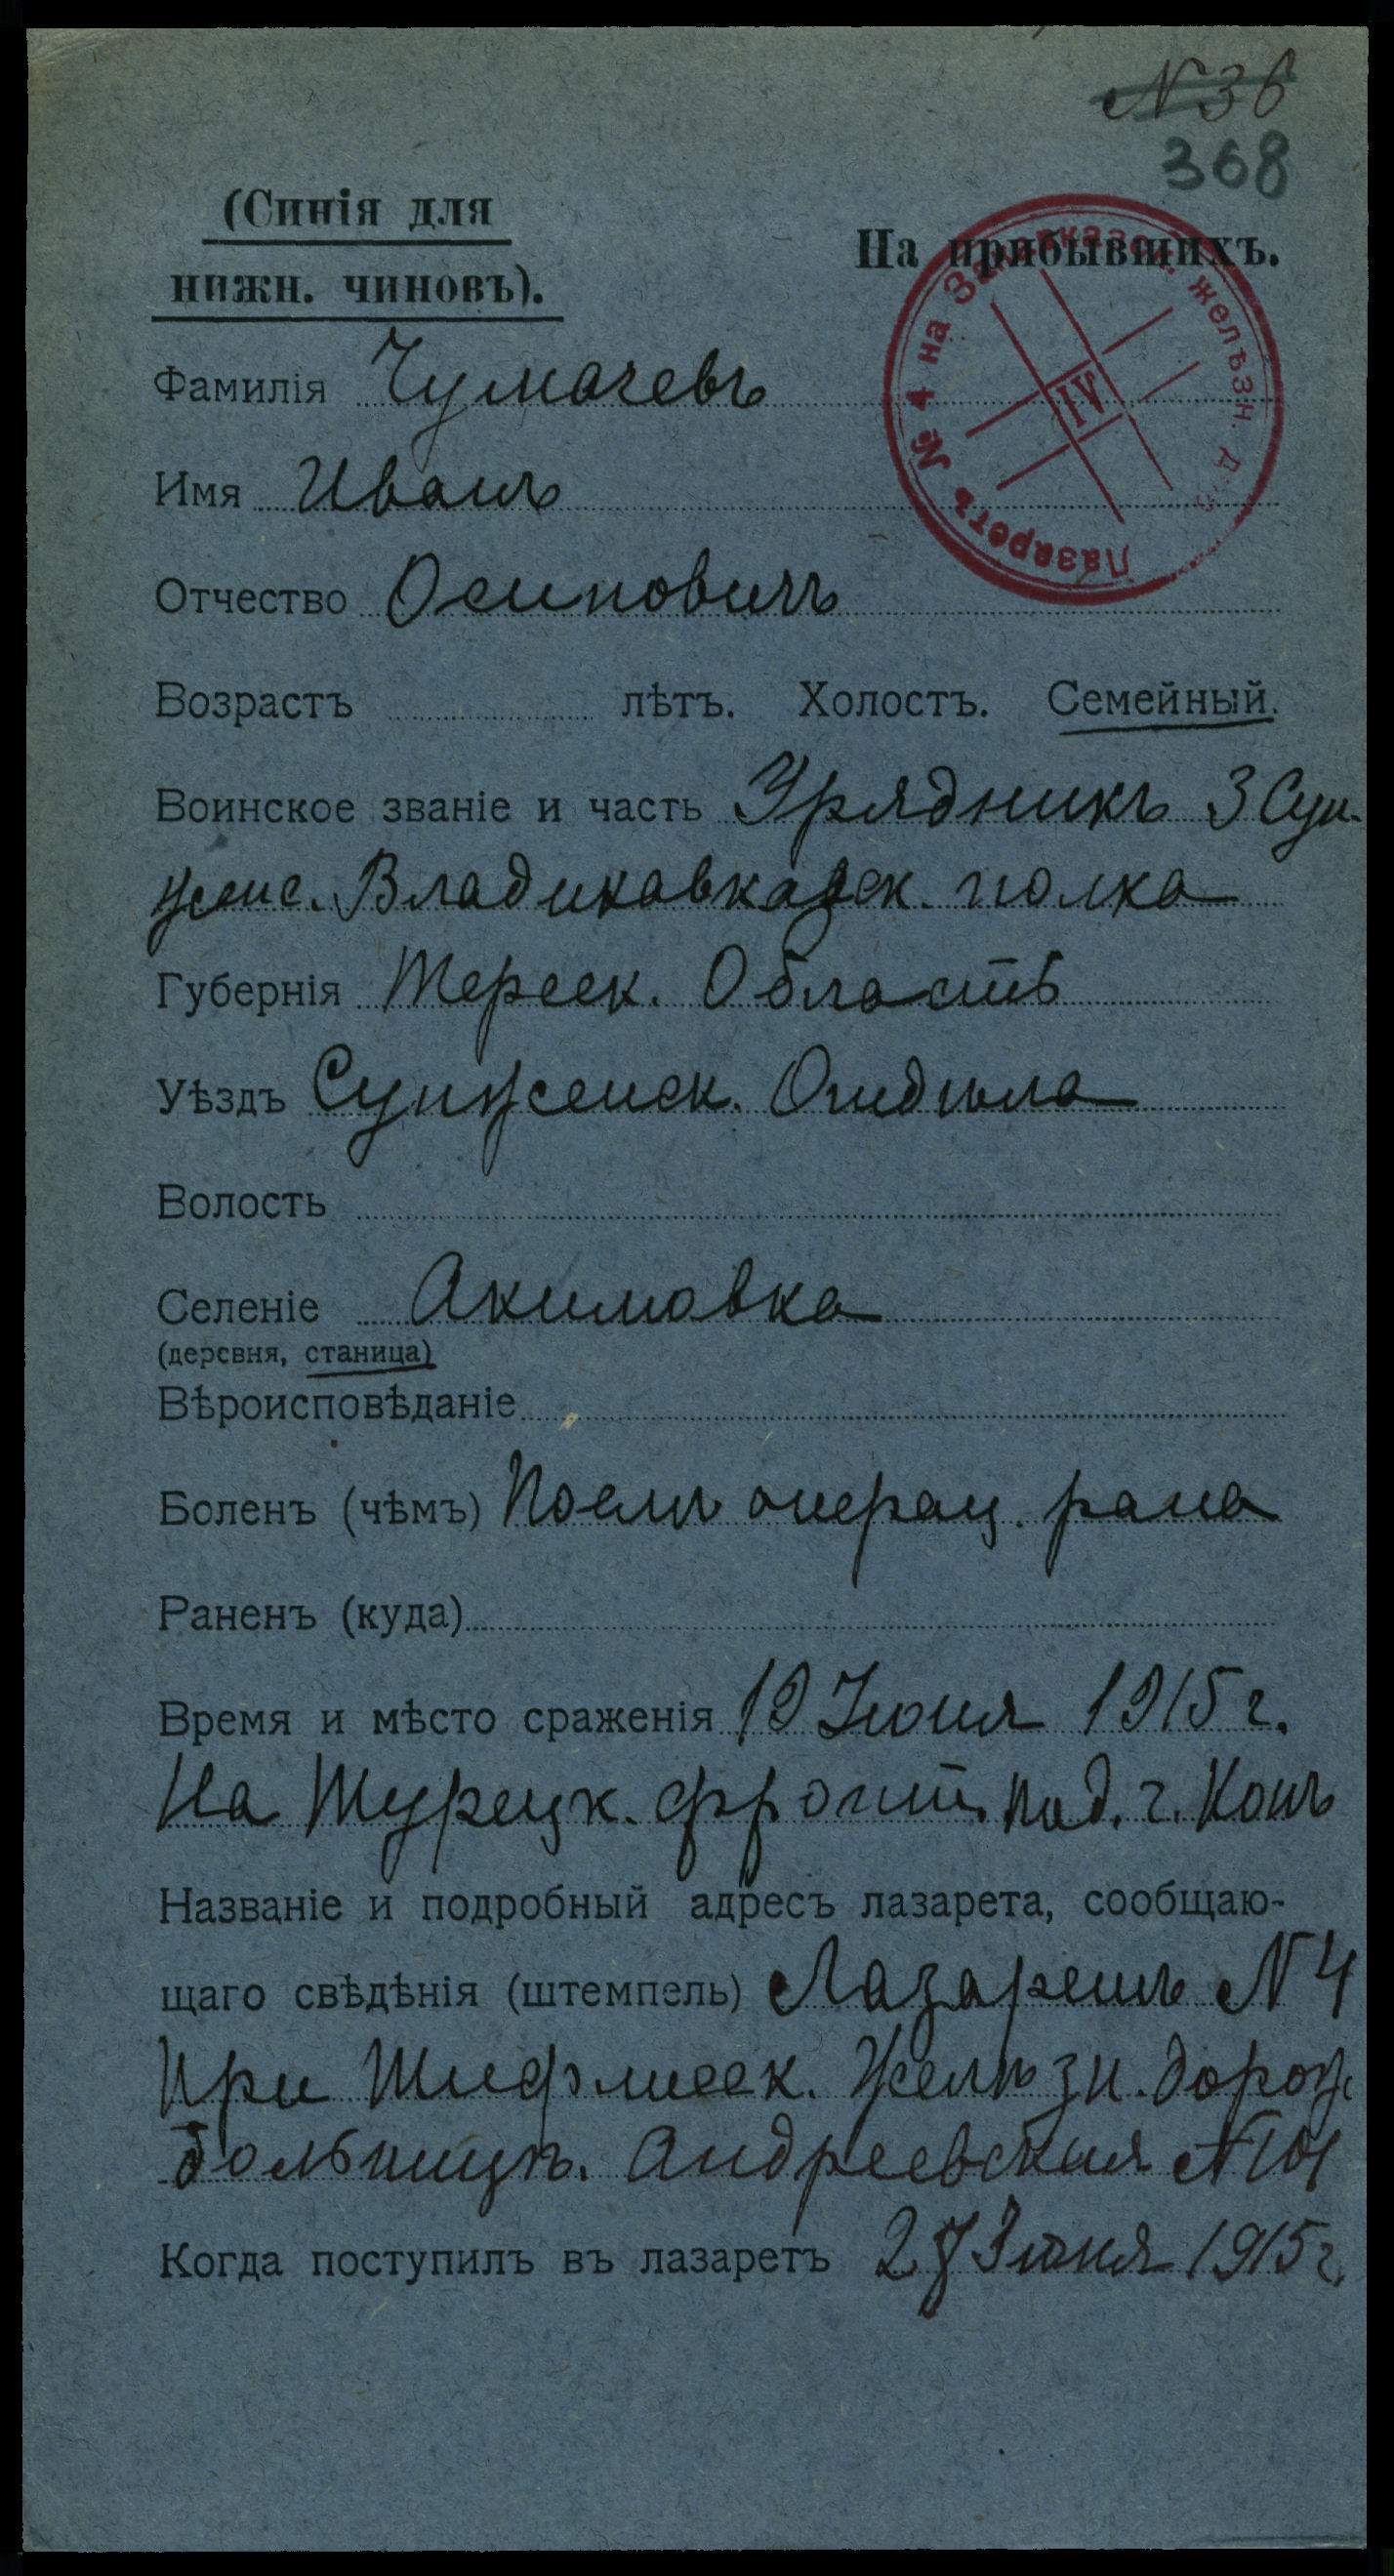 № 36
368
(Синія для
нижн. чиновъ).
На прибывшихъ.
Лазаретъ № 4 на Закавказск. желѣзн. дор.
IV
Фамилія Чумачевъ
Имя Иванъ
Отчество Осиповичъ
Возрастъ лѣтъ. Холостъ. Семейный.
Воинское званіе и часть Урядникъ 3 Сун-
женс. Владикавказск. полка
Губернія Терск. Область
Уѣздъ Сунженск. Отдѣла
Волость
Селеніе Акимовка
(деревня, станица)
Вѣроисповѣданіе
Боленъ (чѣмъ) Посли операц. рана
Раненъ (куда)
Время и мѣсто сраженія 19 Іюня 1915 г.
На Турецк. фронт. под. г. Копъ
Названіе и подробный адресъ лазарета, сообщаю-
щаго свѣдѣнія (штемпель) Лазаретъ № 4
При Тифлисск. Желѣзн. дорож.
больницѣ. Андреевская № 101
Когда поступилъ въ лазаретъ 27 Іюня 1915 г.